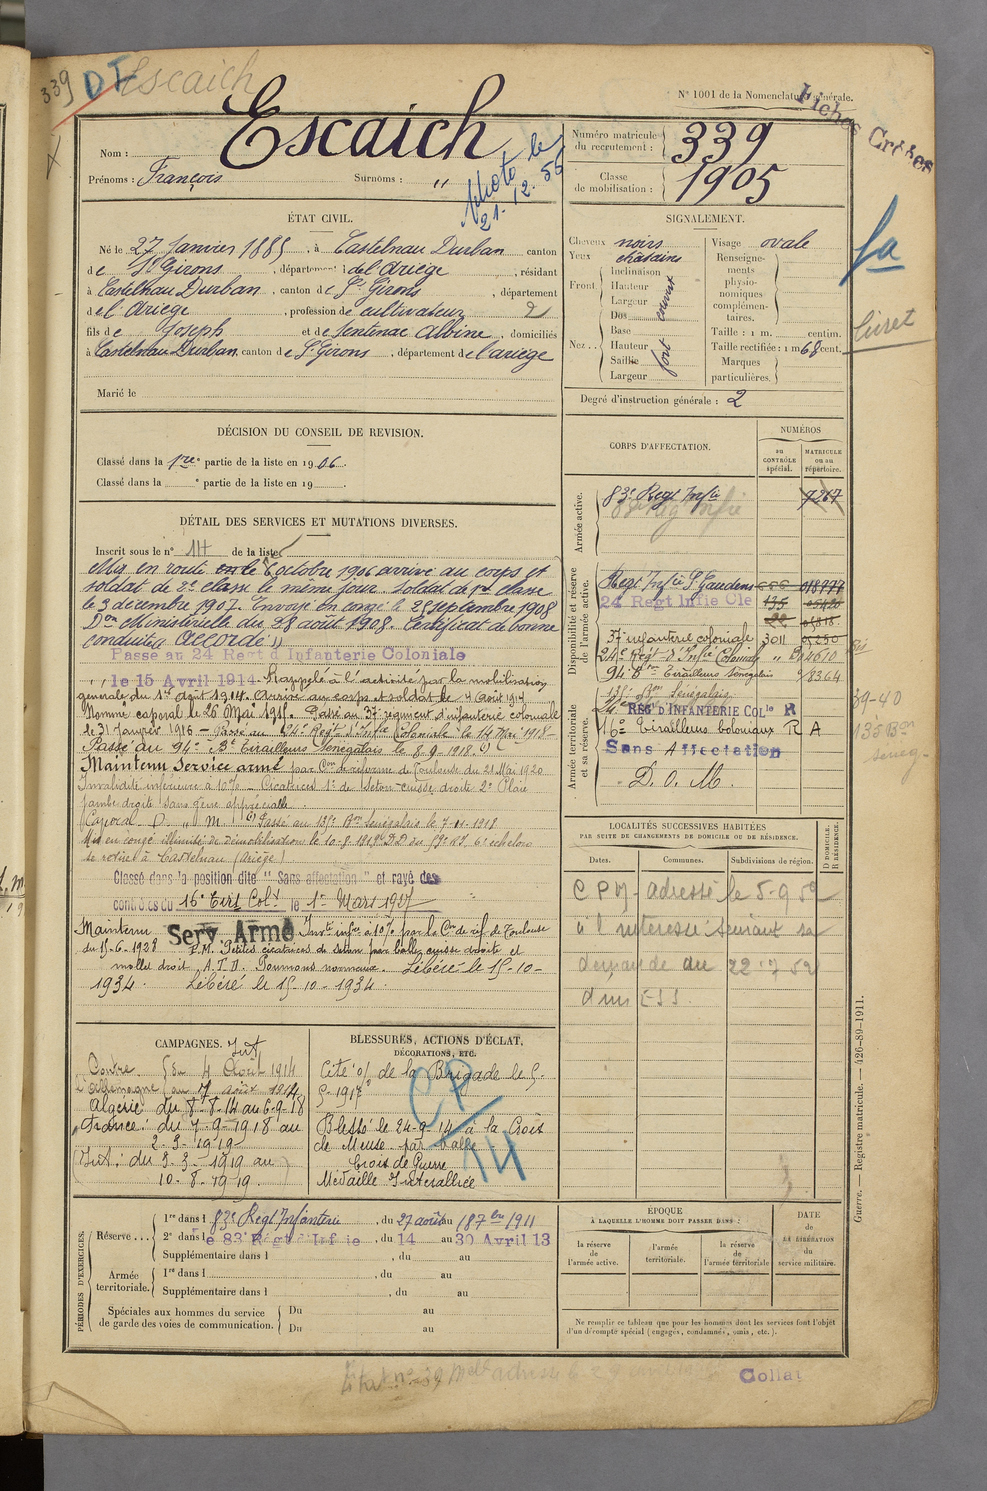 339 DI Escaich
N° 1001 de la Nomenclature générale.
Fiches Créées
Nom : Escaich
Prénoms : François Surnoms : "
photo le
21.12.55
Numéro matricule du recrutement : 339
Classe de mobilisation : 1905
ÉTAT CIVIL.
Né le 27 Janvier 1885, à Castelnau Durban canton
de St Girons, département de l'Ariège, résidant
à Castelnau Durban, canton de St Girons, département
de l'Ariège, profession de cultivateur 2
fils de Joseph et de Sentenac Albine, domiciliés
à Castelnau Durban canton de St Girons, département de l'Ariège
Marié le
SIGNALEMENT.
Cheveux noirs
Yeux chatains
Front. Inclinaison Hauteur Largeur
Nez.. Dos Base Hauteur Saillie Largeur fort
Visage ovale
Renseignements physionomiques complémentaires.
Taille : 1 m. centim.
Taille rectifiée : 1 m 68 cent.
Marques particulières.
Degré d'instruction générale : 2
Livret
DÉCISION DU CONSEIL DE REVISION.
Classé dans la 1re partie de la liste en 1906.
Classé dans la e partie de la liste en 19
DÉTAIL DES SERVICES ET MUTATIONS DIVERSES.
Inscrit sous le n° 114 de la liste
Mis en route le 6 octobre 1906 arrivé au corps et
soldat de 2e classe le même jour. Soldat de 1re classe
le 3 décembre 1907. Envoyé en congé le 25 septembre 1908
Don Ministérielle du 28 août 1908. Certificat de bonne
conduite Accordé
Passé au 24 Regt d'Infanterie Coloniale
le 15 Avril 1914. Rappelé à l'activité par la mobilisation
générale du 1er Août 1914. Arrivé au corps et soldat le 4 Août 1914
Nommé caporal le 26 Mai 1915. Passé au 37e régiment d'infanterie coloniale
le 31 Janvier 1916 - Passé au 24e Regt d'Infie Coloniale le 14 Mai 1918 -
Passé au 94e Bt Tirailleurs Sénégalais le 8-9-1918.
Maintenu Service armé par Con de réforme de Toulouse du 21 Mai 1920
Invalidité inférieure à 10% - Cicatrices 1° de Seton cuisse droite 2° Plaie
jambe droite sans gêne appréciable.
Caporal D. " M. Passé au 135e Bon Sénégalais le 7-11-1918
Mis en congé illimité de démobilisation le 10-8-1919 6e échelon
se retire à Castelnau (Ariège)
Classé dans la position dite "Sans affectation" et rayé des
contrôles du 16e Tirs Colx le 1er Mars 1927
Maintenu Serv. Armé Invté infre à 10% par la Con de réf. de Toulouse
du 15-6-1928 P.M. Petites cicatrices de séton par balle, cuisse droite et
mollet droit. Poumons normaux. Libéré le 15-10-
1934. Libéré le 15-10-1934.
CORPS D'AFFECTATION.
NUMÉROS
au CONTRÔLE spécial.
MATRICULE ou au répertoire.
Armée active.
83e Regt Infie 7267
Disponibilité et réserve de l'armée active.
Regt Infie St Gaudens
24 Regt Infie Cle 135
37e infanterie coloniale 3011
24e Regt d'Infie Coloniale
94e Bon Tirailleurs Sénégalais 8364
Armée territoriale et sa réserve.
135e Bon Sénégalais
24e REG D'INFANTERIE COLle R
16e Tirailleurs Coloniaux R A
Sans Affectation
D. O. M.
39-40
135 Bon
Sénég.
LOCALITÉS SUCCESSIVES HABITÉES
PAR SUITE DE CHANGEMENTS DE DOMICILE OU DE RÉSIDENCE.
Dates. Communes. Subdivisions de région. D DOMICILE. R RÉSIDENCE.
adressé le 5-9 52
à l'intéressé suivant sa
demande du 22-7 52
CAMPAGNES.
Contre l'Allemagne
Int du 4 Août 1914 au 7 Août 1914
Algérie du 8-8-14 au 6-9-18
France: du 7-9-1918 au
2-3-1919
Int: du 3-3-1919 au
10-8-1919.
BLESSURES, ACTIONS D'ÉCLAT,
DÉCORATIONS, ETC.
Cité o/ de la Brigade le 5-
5-1917
Blessé le 24-9-14 à la Croix
de Meuse par balle
Croix de Guerre
Médaille Interalliée
CP
14
PÉRIODES D'EXERCICES.
Réserve... 1re dans l 83e Regt Infanterie, du 27 août au 18 7bre 1911
2e dans le 83e Régt d'Infie, du 14 au 30 Avril 13
Supplémentaire dans l , du au
Armée territoriale. 1re dans l , du au
Supplémentaire dans l , du au
Spéciales aux hommes du service de garde des voies de communication. Du au
Du au
ÉPOQUE
À LAQUELLE L'HOMME DOIT PASSER DANS :
la réserve de l'armée active.
l'armée territoriale.
la réserve de l'armée territoriale
DATE de LA LIBÉRATION du service militaire.
Ne remplir ce tableau que pour les hommes dont les services font l'objet
d'un décompte spécial (engagés, condamnés, omis, etc.).
Guerre. — Registre matricule. — 426-89-1911.
Collat